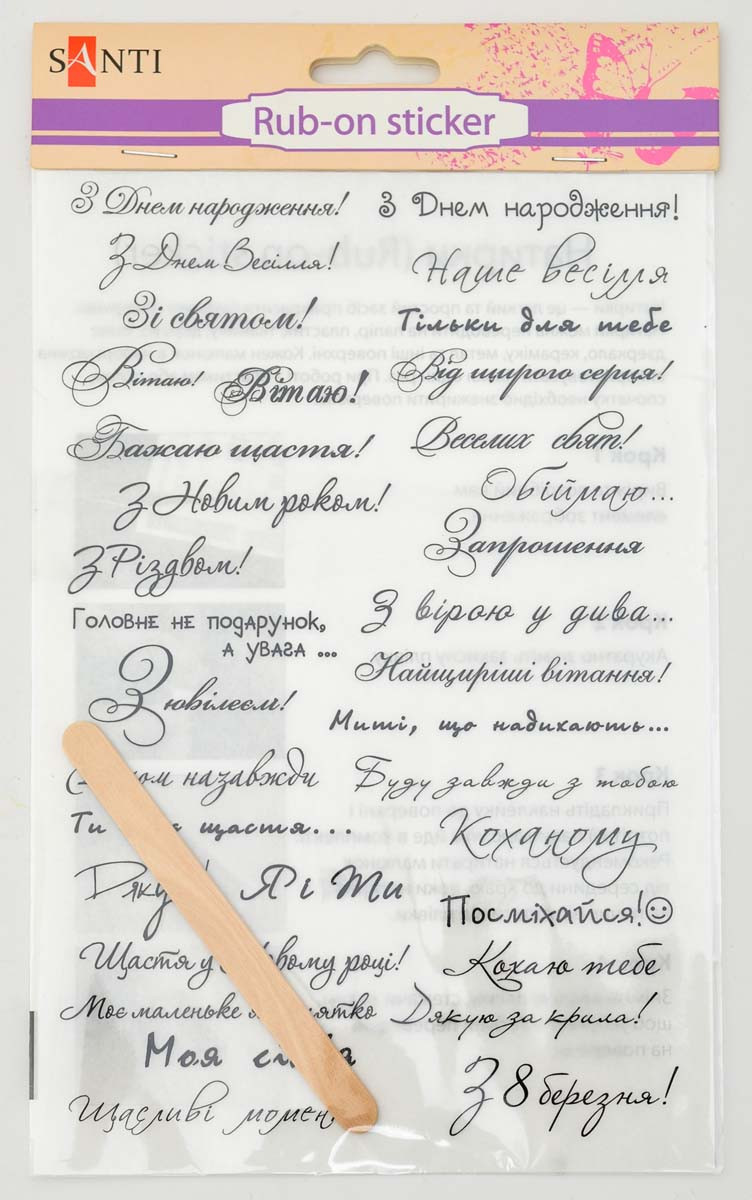 SANTI
Rub-on sticker
З Днем народження!
З Днем народження!
З Днем Весілля!
Наше весілля
Зі святом!
Тільки для тебе
Вітаю!
Вітаю!
Від щирого серця!
Бажаю щастя!
Веселих свят!
З Новим роком!
Обіймаю...
Запрошення
З Різдвом!
З вірою у дива...
Головне не подарунок,
а увага ...
Найщиріші вітання!
З ювілеєм!
Миті, що надихають...
назавжди
Буду завжди з тобою
Ти щастя...
Коханому
Я і Ти
Посміхайся!
Щастя у році!
Кохаю тебе
Моє маленьке
Дякую за крила!
Моя
З 8 березня!
Щасливі